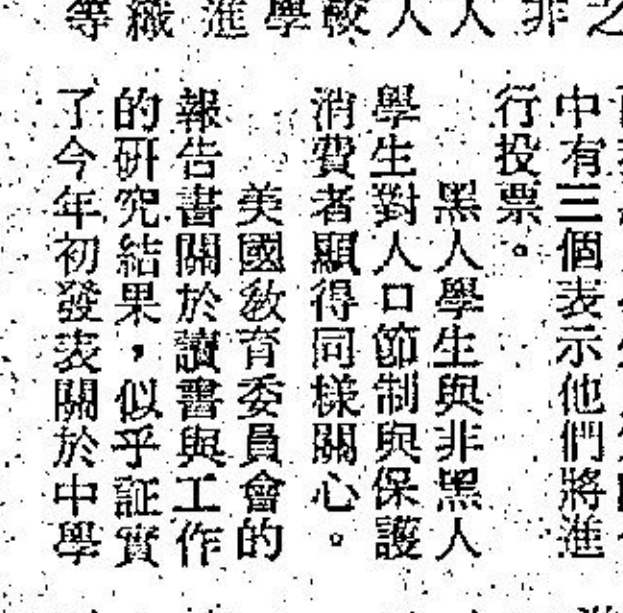 中有三個表示他們將進
行投票。
黑人學生與非黑人
學生對人口節制與保護
消費者顯得同樣關心。
美國教育委員會的
報告書關於讀書與工作
的研究結果，似乎証實
了今年初發表關於中學